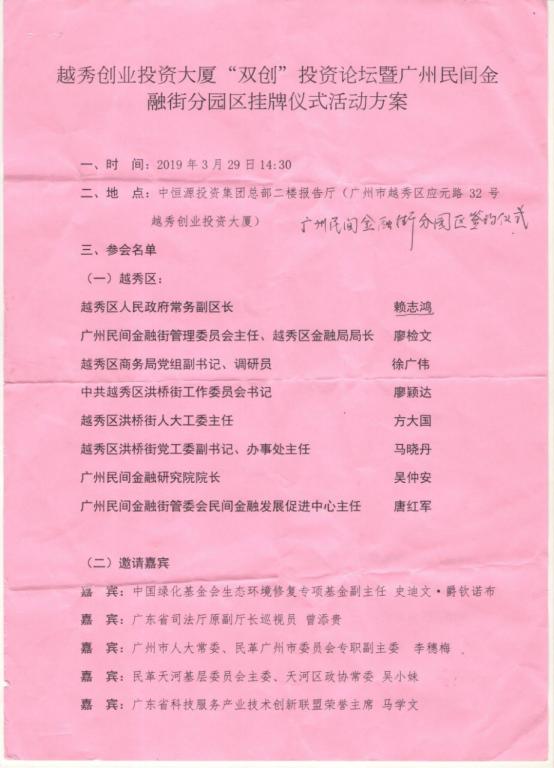 越秀创业投资大厦“双创”投资论坛暨广州民间金
融街分园区挂牌仪式活动方案
一、时　间：2019 年 3 月 29 日 14:30
二、地　点：中恒源投资集团总部二楼报告厅（广州市越秀区应元路 32 号
越秀创业投资大厦）
广州民间金融街分园区签约仪式
三、参会名单
（一）越秀区：
越秀区人民政府常务副区长　赖志鸿
广州民间金融街管理委员会主任、越秀区金融局局长　廖检文
越秀区商务局党组副书记、调研员　徐广伟
中共越秀区洪桥街工作委员会书记　廖颖达
越秀区洪桥街人大工委主任　方大国
越秀区洪桥街党工委副书记、办事处主任　马晓丹
广州民间金融研究院院长　吴仲安
广州民间金融街管委会民间金融发展促进中心主任　唐红军
（二）邀请嘉宾
嘉　宾：中国绿化基金会生态环境修复专项基金副主任 史迪文·爵钦诺布
嘉　宾：广东省司法厅原副厅长巡视员 曾添贵
嘉　宾：广州市人大常委、民革广州市委员会专职副主委　李穗梅
嘉　宾：民革天河基层委员会主委、天河区政协常委 吴小妹
嘉　宾：广东省科技服务产业技术创新联盟荣誉主席 马学文